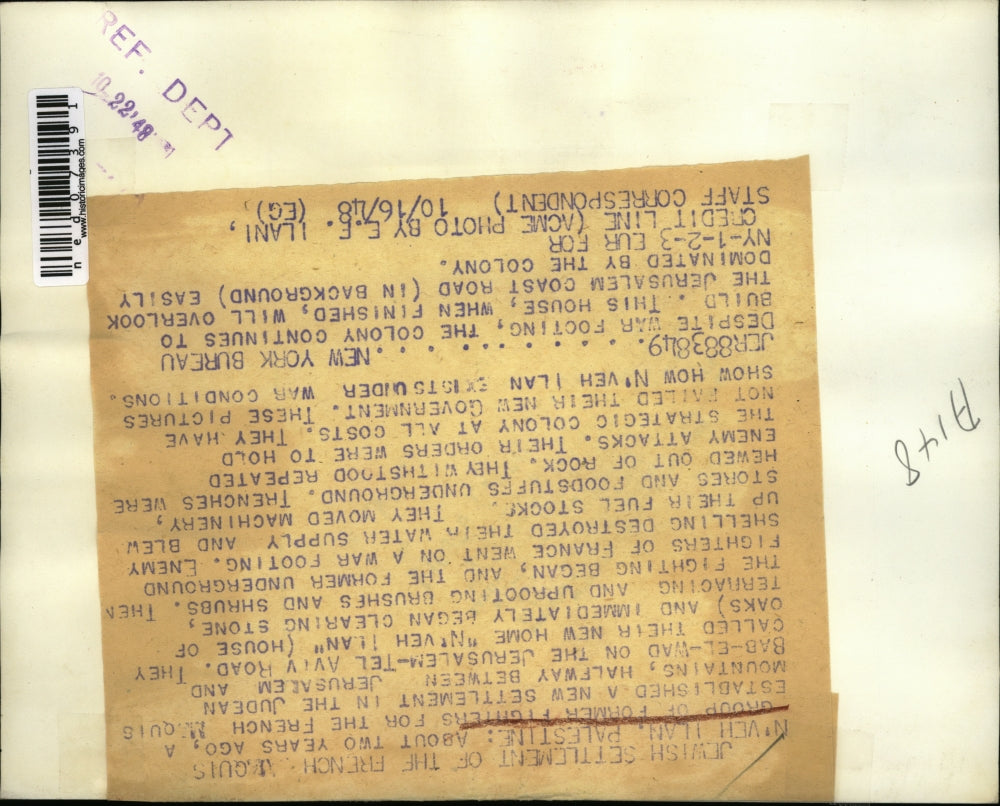 JEWISH SETTLEMENT OF THE FRENCH M.QUIS
N'VEH ILAN, PALESTINE: ABOUT TWO YEARS AGO, A
GROUP OF FORMER FIGHTERS FOR THE FRENCH M.QUIS
ESTABLISHED A NEW SETTLEMENT IN THE JUDEAN
MOUNTAINS, HALFWAY BETWEEN JERUSALEM AND
BAB-EL-WAD ON THE JERUSALEM-TEL AVIV ROAD. THEY
CALLED THEIR NEW HOME "N'VEH ILAN" (HOUSE OF
OAKS) AND IMMEDIATELY BEGAN CLEARING STONE,
TERRACING AND UPROOTING BRUSHES AND SHRUBS. THEN
THE FIGHTING BEGAN, AND THE FORMER UNDERGROUND
FIGHTERS OF FRANCE WENT ON A WAR FOOTING. ENEMY
SHELLING DESTROYED THEIR WATER SUPPLY AND BLEW
UP THEIR FUEL STOCKS. THEY MOVED MACHINERY,
STORES AND FOODSTUFFS UNDERGROUND. TRENCHES WERE
HEWED OUT OF ROCK. THEY WITHSTOOD REPEATED
ENEMY ATTACKS. THEIR ORDERS WERE TO HOLD
THE STRATEGIC COLONY AT ALL COSTS. THEY HAVE
NOT FAILED THEIR NEW GOVERNMENT. THESE PICTURES
SHOW HOW N'VEH ILAN EXISTS UNDER WAR CONDITIONS.
JER883849. . . . . . . . . .NEW YORK BUREAU
DESPITE WAR FOOTING, THE COLONY CONTINUES TO
BUILD. THIS HOUSE, WHEN FINISHED, WILL OVERLOOK
THE JERUSALEM COAST ROAD (IN BACKGROUND) EASILY
DOMINATED BY THE COLONY.
NY-1-2-3 EUR FOR
CREDIT LINE (ACME PHOTO BY E.E. ILANI,
STAFF CORRESPONDENT) 10/16/48 (EG)
REF. DEPT
10-22'48
ned07391
www.historicimages.com
A148